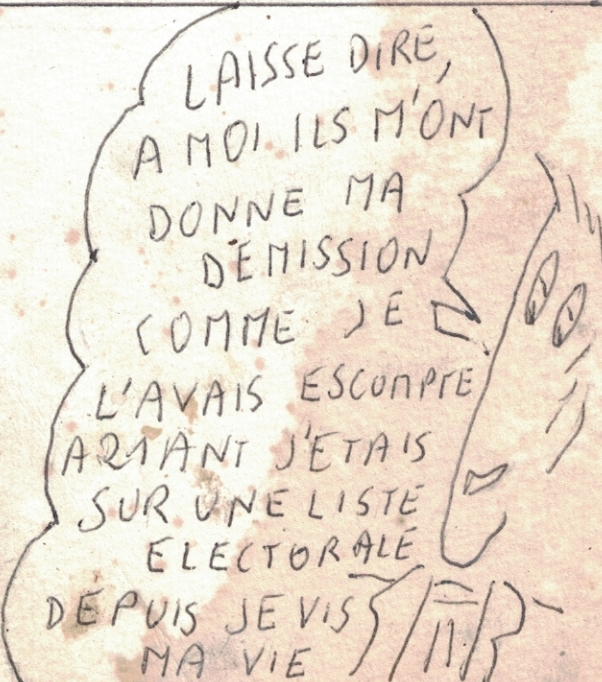 LAISSE DIRE,
A MOI ILS M'ONT
DONNE MA
DEMISSION
COMME JE
L'AVAIS ESCOMPTE
J'ETAIS
SUR UNE LISTE
ELECTORALE
DEPUIS JE VIS
MA VIE